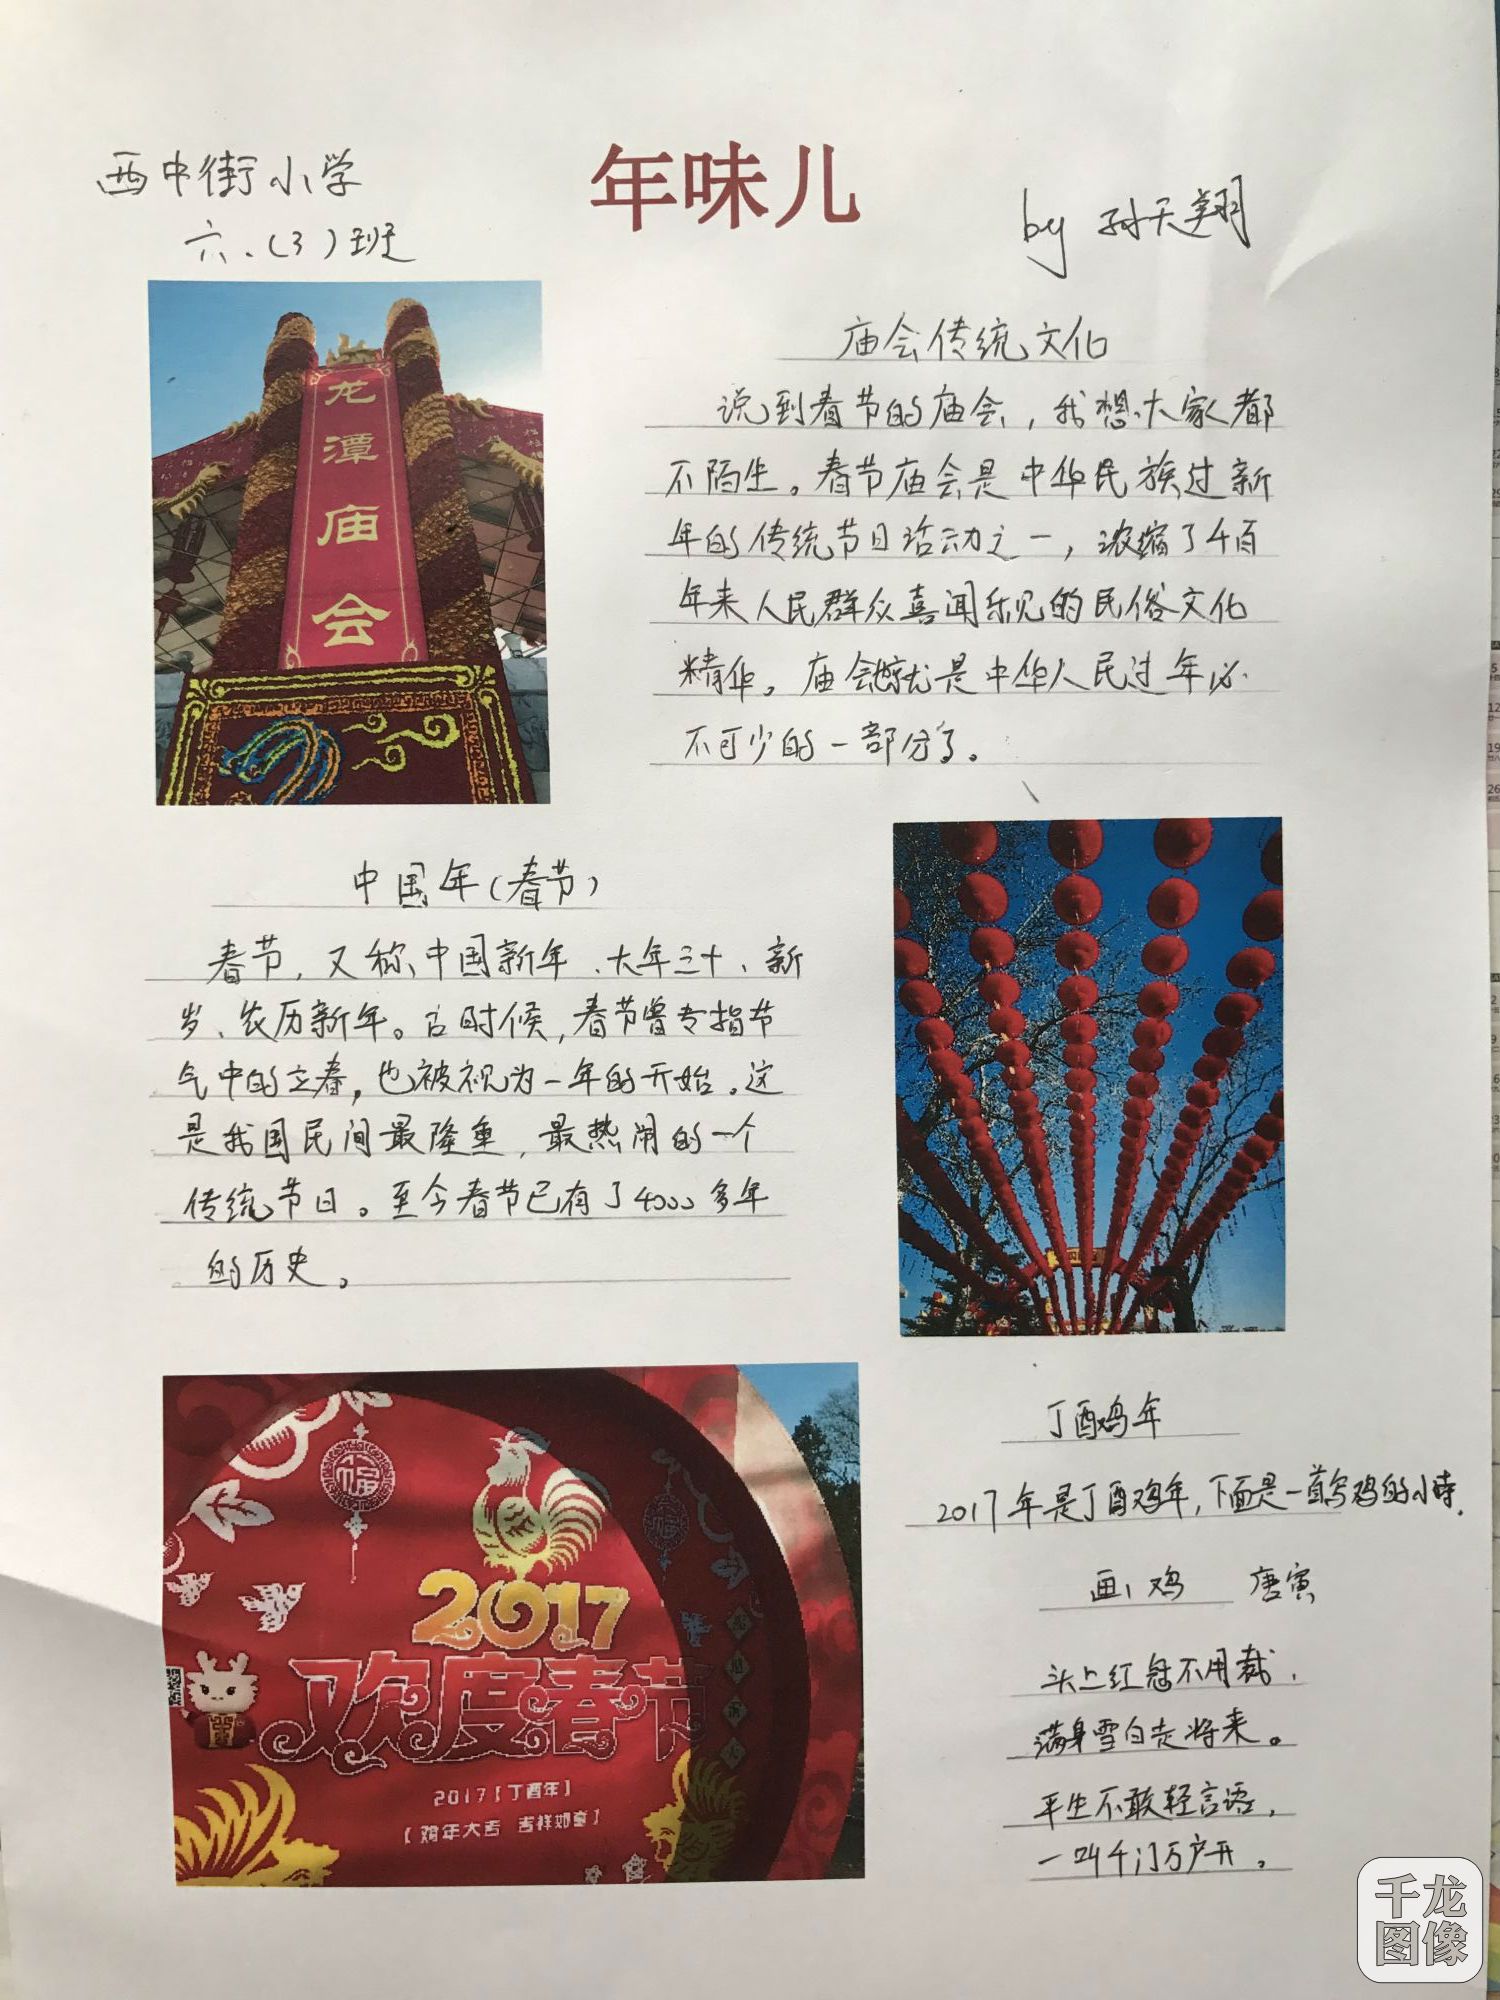 西中街小学
六.(3)班
年味儿
by 孙天翔
龙
潭
庙
会
庙会传统文化
说到春节的庙会，我想大家都
不陌生。春节庙会是中华民族过新
年的传统节日活动之一，浓缩了千百
年来人民群众喜闻乐见的民俗文化
精华。庙会就是中华人民过年必
不可少的一部分了。
中国年（春节）
春节，又称、中国新年、大年三十、新
岁、农历新年。古时候，春节曾专指节
气中的立春，也被视为一年的开始。这
是我国民间最隆重，最热闹的一个
传统节日。至今春节已有了4000多年
的历史。
福
2017
欢度春节
2017【丁酉年】
【鸡年大吉 吉祥如意】
丁酉鸡年
2017年是丁酉鸡年，下面是一首写鸡的小诗.
画鸡 唐寅
头上红冠不用裁，
满身雪白走将来。
平生不敢轻言语，
一叫千门万户开。
千龙
图像